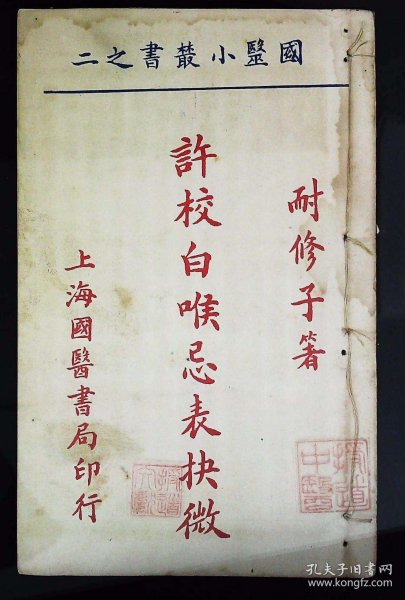 國醫小叢書之二
耐修子箸
許校白喉忌表抉微
上海國醫書局印行
孔夫子旧书网
www.kongfz.com